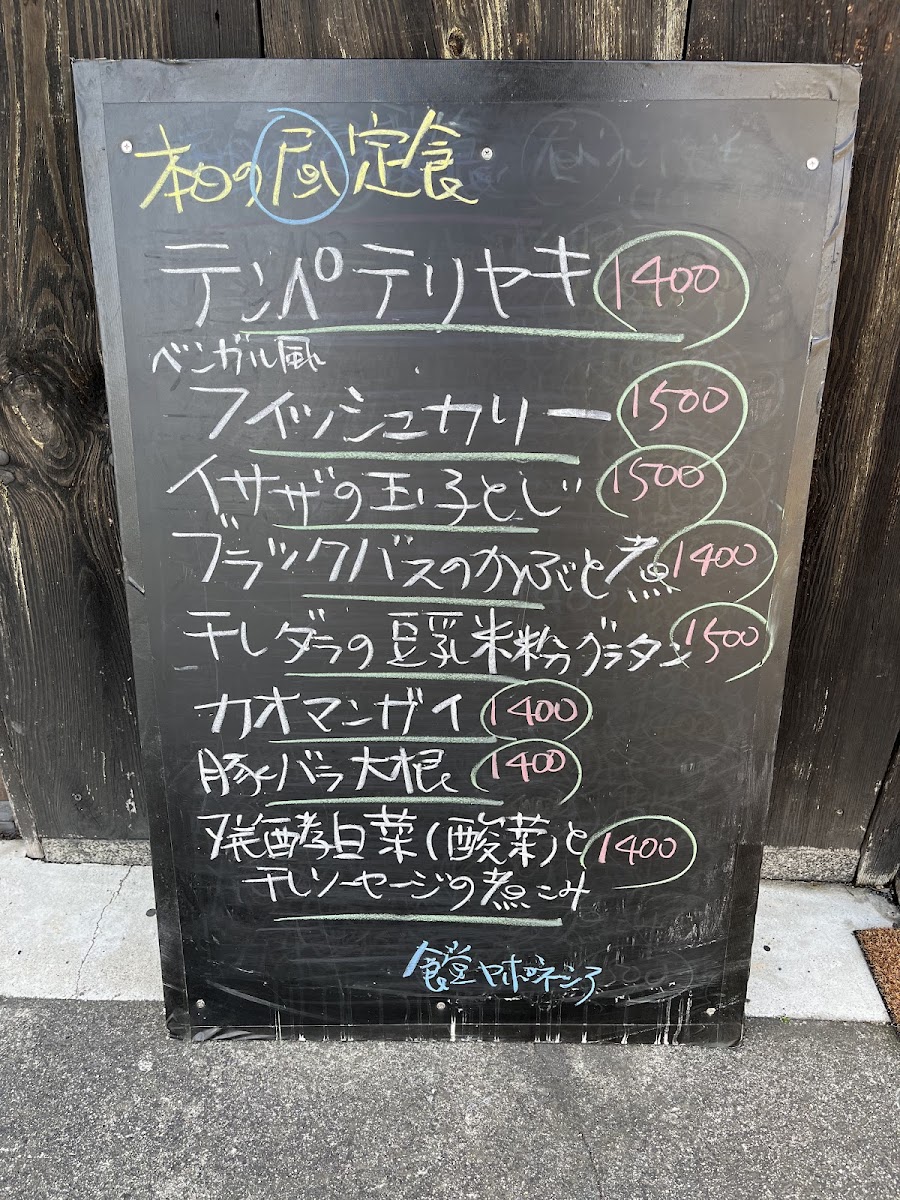 本日の昼定食
テンペテリヤキ 1400
ベンガル風
フィッシュカリー 1500
イサザの玉子とじ 1500
ブラックバスのかぶと煮 1400
干しダラの豆乳米粉グラタン 1500
カオマンガイ 1400
豚バラ大根 1400
発酵白菜(酸菜)と 1400
干しソーセージの煮こみ
食堂ヤポネシア